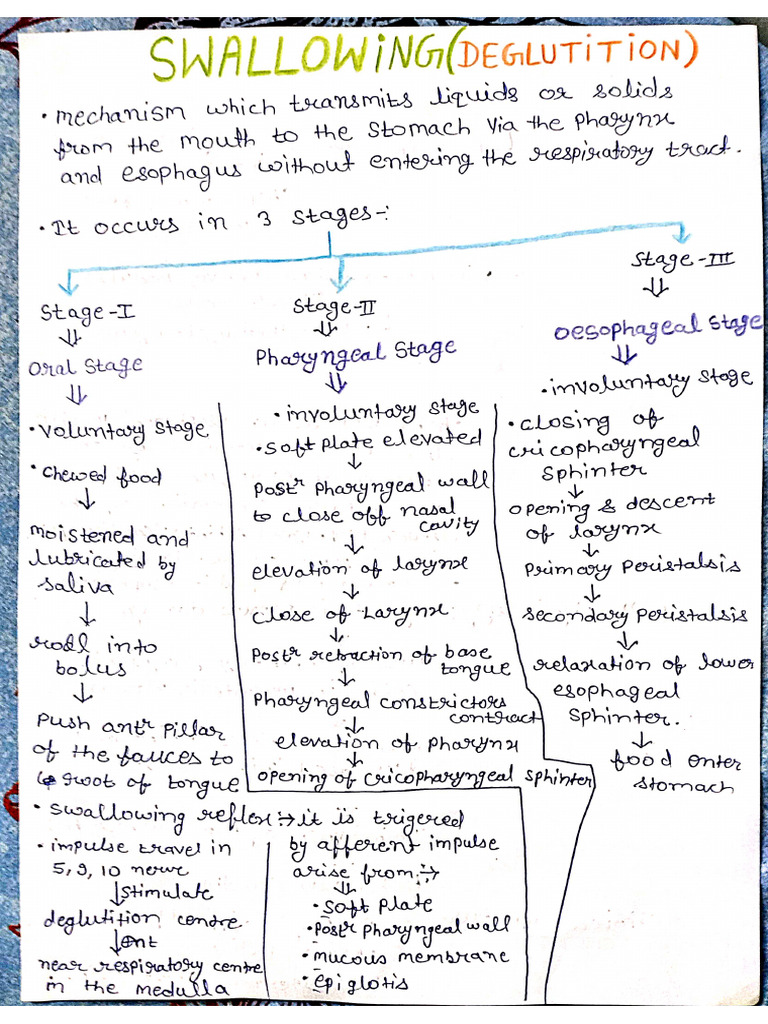 SWALLOWING (DEGLUTITION)
• mechanism which transmits liquids or solids
from the mouth to the stomach via the pharynx
and esophagus without entering the respiratory tract.
• It occurs in 3 stages-:
Stage-I
⇓
oral stage
⇓
• voluntary stage
• chewed food
↓
moistened and
lubricated by
saliva
↓
roll into
bolus
↓
push antr pillar
of the fauces to
root of tongue
Stage-II
⇓
Pharyngeal Stage
⇓
• involuntary stage
• soft plate elevated
↓
postr pharyngeal wall
to close off nasal
cavity
↓
elevation of larynx
↓
close of Larynx
↓
Postr retraction of base
tongue
↓
Pharyngeal constrictors
contract
↓
elevation of pharynx
↓
opening of cricopharyngeal sphinter
Stage-III
⇓
oesophageal stage
⇓
• involuntary stage
• closing of
cricopharyngeal
sphinter
↓
opening & descent
of larynx
↓
Primary peristalsis
↓
secondary peristalsis
↓
relaxation of lower
esophageal
sphinter.
↓
food enter
stomach
• swallowing reflex :→ it is trigered
by afferent impulse
arise from :→
⇓
• soft plate
• postr pharyngeal wall
• mucous membrane
• epiglotis
• impulse travel in
5, 9, 10 nerve
↓ stimulate
deglutition centre
↓
near respiratory centre
in the medulla